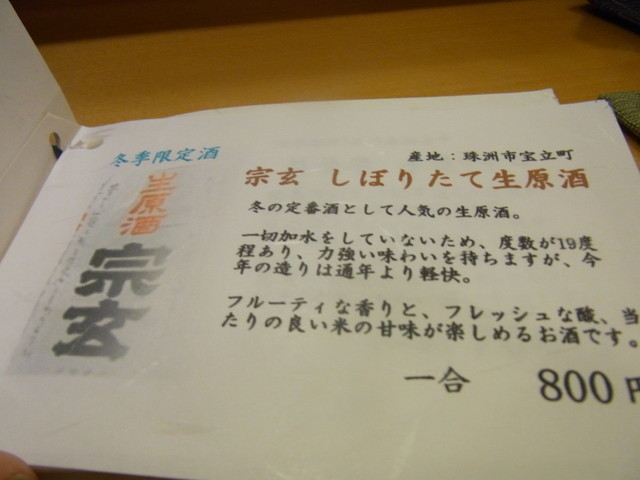 冬季限定酒
産地：珠洲市宝立町
宗玄 しぼりたて生原酒
生原酒
宗玄
冬の定番酒として人気の生原酒。
一切加水をしていないため、度数が19度
程あり、力強い味わいを持ちますが、今
年の造りは通年より軽快。
フルーティな香りと、フレッシュな酸、当
たりの良い米の甘味が楽しめるお酒です。
一合 800円